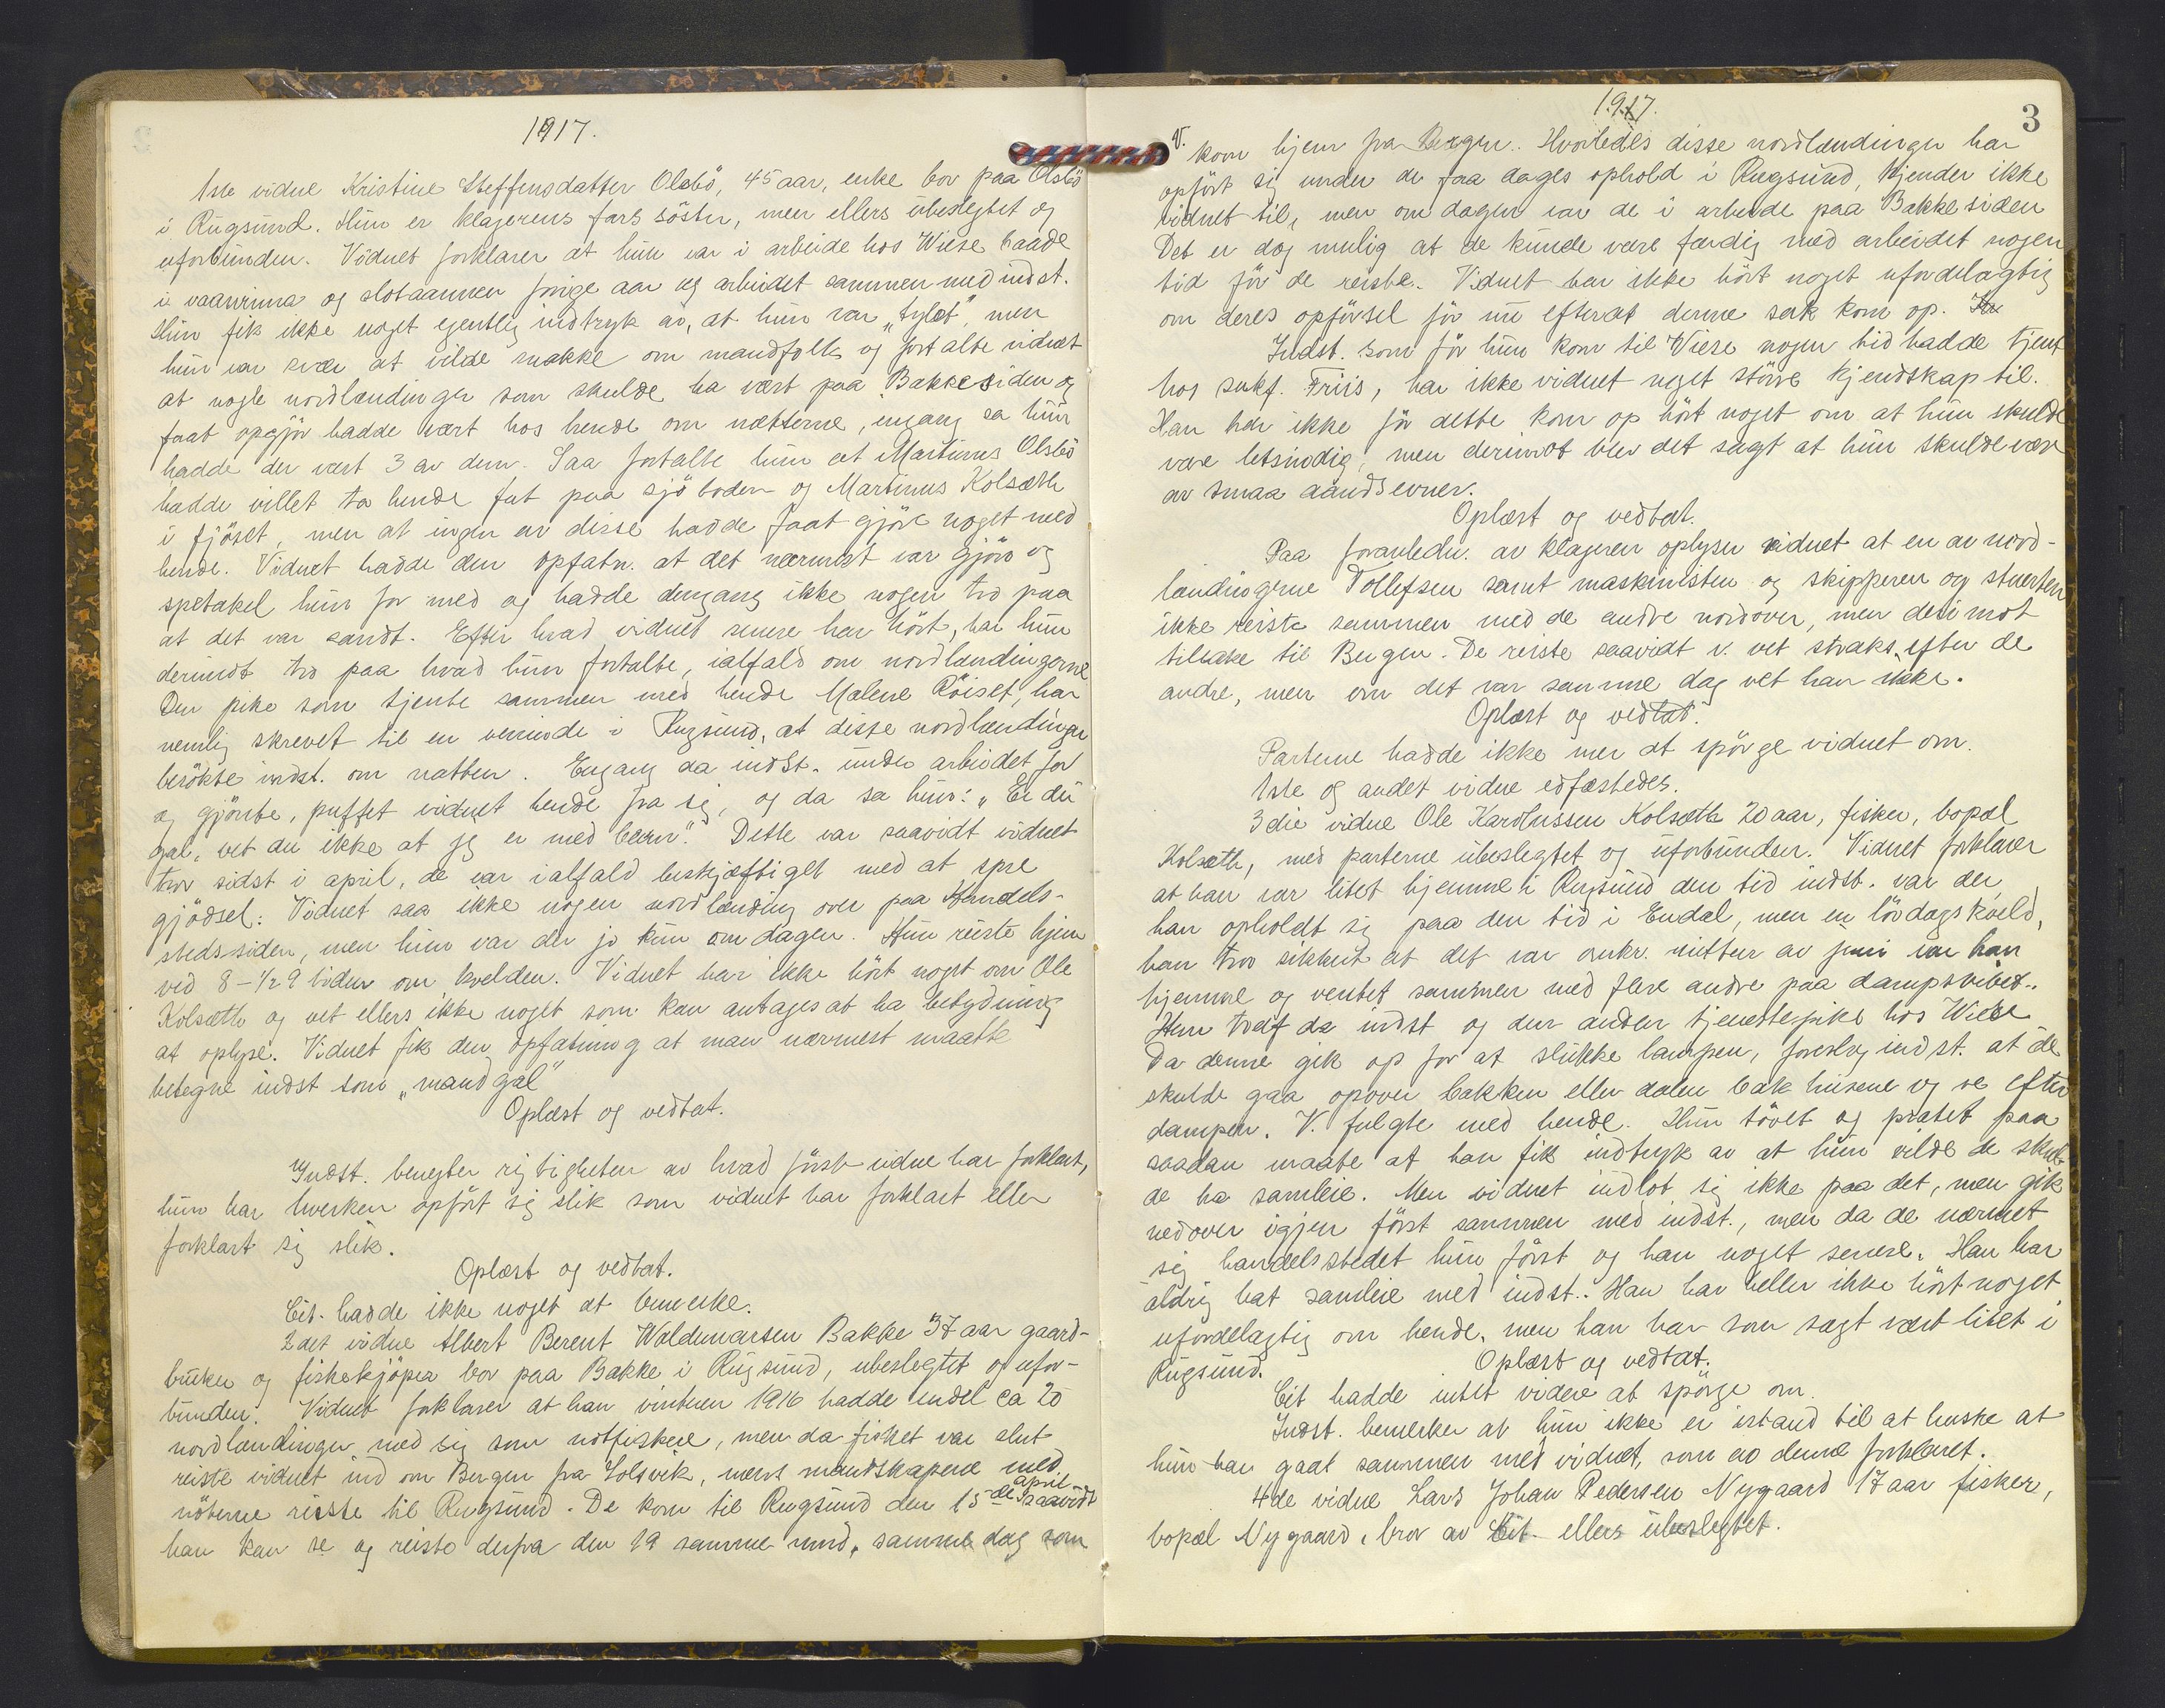 1917.
1ste vidne Kristine Steffensdatter Olsbö, 45 aar, enke bor paa Olsbö
i Rugsund. Hun er klagerens fars söster, men ellers ubeslegtet og
uforbunden. Vidnet forklarer at hun var i arbeide hos Wiese baade
i vaarvinna og slotaannen forrige aar og arbeidet sammen med indst.
Hun fik ikke noget egentlig indtryk av, at hun var „tylet", men
hun var svær at vilde snakke om mandfolk og fortalte vidnet
at nogle nordlændinger som skulde ha vært paa Bakkesiden og
faat opgjör hadde vært hos hende om nætterne, engang sa hun
hadde der vært 3 av dem. Saa fortalte hun at Martinus Olsbö
hadde villet ta hende fat paa sjöboden og Martinus Kolsæth
i fjöset, men at ingen av disse hadde faat gjöre noget med
hende. Vidnet hadde den opfatn. at det nærmest var gjön og
spetakel hun for med og hadde dengang ikke nogen tro paa
at det var sandt. Efter hvad vidnet senere har hört, har hun
derimot tro paa hvad hun fortalte, ialfald om nordlændingerne
Den pike som tjente sammen med hende Malene Röiset, har
nemlig skrevet til en veninde i Rugsund, at disse nordlændinger
besökte indst. om natten. Engang da indst. under arbeidet for
og gjönte, puffet vidnet hende fra sig, og da sa hun: „Er du
gal, vet du ikke at jeg er med barn". Dette var saavidt vidnet
tror sidst i april, de var ialfald beskjæftiget med at spre
gjödsel. Vidnet saa ikke nogen nordlænding over paa Handels-
stedssiden, men hun var der jo kun om dagen. Hun reiste hjem
ved 8 - ½ 9 tiden om kvelden. Vidnet har ikke hört noget om Ole
Kolsæth og vet ellers ikke noget som kan antages at ha betydning
at oplyse. Vidnet fik den opfatning at man nærmest maatte
betegne indst som „mandgal"
Oplæst og vedtat.
Indst. benegter rigtigheten av hvad första vidne har forklart,
hun har hverken opfört sig slik som vidnet har forklart eller
forklart sig slik.
Oplæst og vedtat.
Cit. hadde ikke noget at bemerke.
2det vidne Albert Berent Waldemarsen Bakke 37 aar gaard-
bruker og fiskekjöper bor paa Bakke i Rugsund, ubeslegtet og ufor-
bunden. Vidnet forklarer at han vinteren 1916 hadde endel ca 20
nordlændinger med sig som notfiskere, men da fisket var slut
reiste vidnet ind om Bergen fra Solsvik, mens mandskapene med
nöterne reiste til Rugsund. De kom til Rugsund den 15de april saavidt
han kan se og reiste derfra den 19 samme mnd, samme dag som
1917.
3
v. kom hjem fra Bergen. Hvorledes disse nordlændinger har
opfört sig under de faa dages ophold i Rugsund, kjender ikke
vidnet til, men om dagen var de i arbeide paa Bakkesiden
Det er dog mulig at de kunde være færdig med arbeidet nogen
tid för de reiste. Vidnet har ikke hört noget ufordelagtig
om deres opförsel för nu efterat denne sak kom op.
Indst. som för hun kom til Wiese nogen tid hadde tjent
hos sakf. Friis, har ikke vidnet noget större kjendskap til.
Han har ikke för dette kom op hört noget om at hun skulde
være letsindig, men derimot blev det sagt at hun skulde være
av smaa aandsevner.
Oplæst og vedtat.
Paa foranledn. av klageren oplyser vidnet at en av nord-
lændingerne Tollefsen samt maskinisten og skipperen og stuerten
ikke reiste sammen med de andre nordover, men derimot
tilbake til Bergen. De reiste saavidt v. vet straks efter de
andre, men om det var samme dag vet han ikke.
Oplæst og vedtat.
Parterne hadde ikke mer at spörge vidnet om.
1ste og andet vidne edfæstedes.
3die vidne Ole Karolussen Kolsæth 20 aar, fisker, bopæl
Kolsæth, med parterne ubeslegtet og uforbunden. Vidnet forklarer
at han var litet hjemme i Rugsund den tid indst. var der,
han opholdt sig paa den tid i Endal, men en lördagskveld,
han tror sikkert at det var omkr. mitten av juni var han
hjemme og ventet sammen med flere andre paa dampskibet.
Han traf da indst og den anden tjenestepike hos Wiese
Da denne gik op for at slukke lampen, foreslog indst. at de
skulde gaa opover bakken eller dalen bak husene og se efter
dampen. V. fulgte med hende. Hun tövet og pratet paa
saadan maate at han fik indtryk av at hun vilde de skul-
de ha samleie. Men vidnet indlot sig ikke paa det, men gik
nedover igjen först sammen med indst., men da de nærmet
sig handelsstedet hun först og han noget senere. Han har
aldrig hat samleie med indst.. Han har heller ikke hört noget
ufordelagtig om hende, men han har som sagt vært litet i
Rugsund.
Oplæst og vedtat.
Cit hadde intet videre at spörge om.
Indst. bemerker at hun ikke er istand til at huske at
hun har gaat sammen med vidnet, som av denne forklaret.
4de vidne Lars Johan Pedersen Nygaard 17 aar fisker,
bopæl Nygaard, bror av Cit. ellers ubeslegtet.